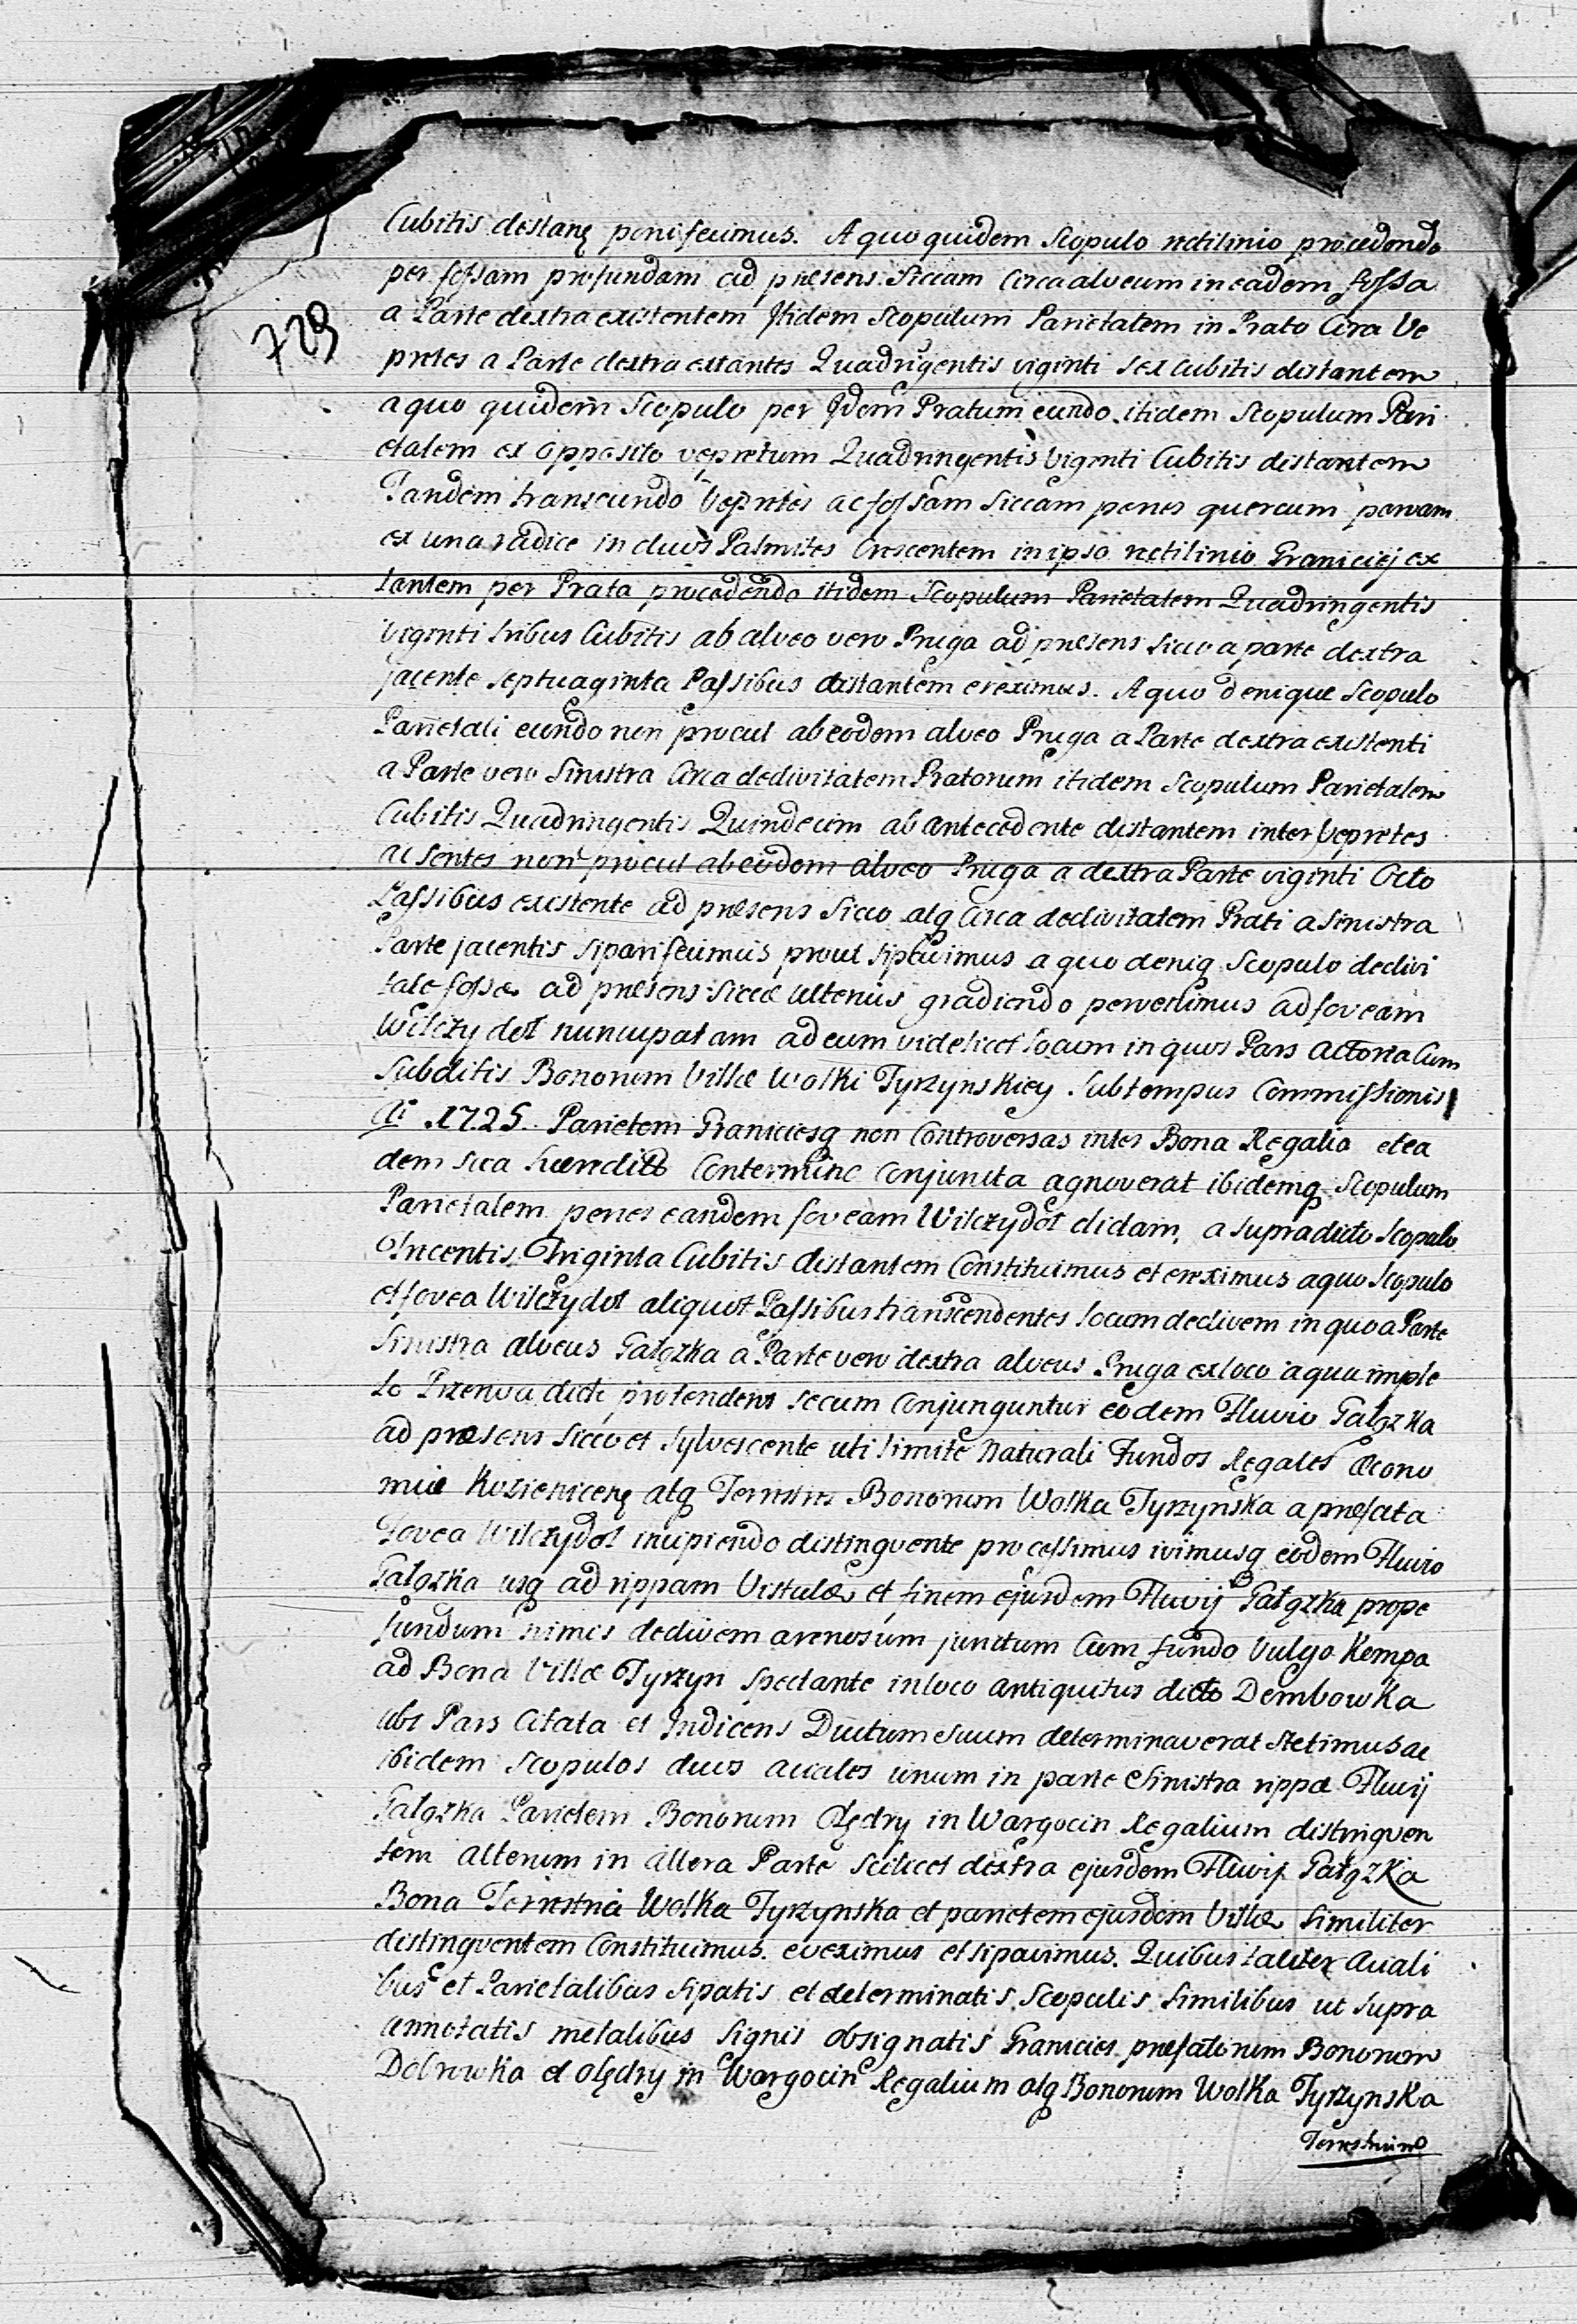 Cubitis destanę ponifecimus. A quo quidem Scopulo rectilinio procedendo
per fossam profundam ad præsens Siccam Circa alveum in eadem fossa
729
a Parte dextra existentem Itidem Scopulum Parietalem in Prato Circa Ve
pretes a Parte dextra extantes Quadrigentis viginti sex Cubitis distantem
a quo quidem Scopulo per Idem Pratum eundo itidem Scopulum Pari
etalem ex opposito vepretum Quadringentis Viginti Cubitis distantem
Tandem transeundo Vepretes ac fossam Siccam penes quercum parvam
ex una radice in duos Palmites Crescentem in ipso rectilinio Graniciej ex
tantem per Prata procedendo itidem Scopulum Parietalem Quadringentis
Viginti tribus Cubitis ab alveo vero Pruga ad præsens sicco a parte dextra
jacente Septuaginta Passibus distantem ereximus. A quo denique Scopulo
Parietali eundo non procul ab eodem alveo Pruga a Parte dextra existenti
a Parte vero Sinistra Circa declivitatem Pratorum itidem Scopulum Parietalem
Cubitis Quadringentis Quindecim ab antecedente distantem inter Vepretes
ac sentes non procul ab eodem alveo Pruga a dextra Parte viginti Octo
Passibus existente ad præsens Sicco atq Circa declivitatem Prati a Sinistra
Parte jacentis sipari fecimus prout sipavimus a quo deniq Scopulo declivi
tate fossæ ad præsens Siccæ ulterius gradiendo pervenimus ad foveam
Wilczy doł nuncupatam ad eum videlicet locum in quos Pars Actorea Cum
Subditis Bonorum Villæ Wolki Tyrzynskiey Sub tempus Commissionis
Ai 1725. Parietem Graniciesq non Controversas inter Bona Regalia et ea
dem sua hæredita Contermine Conjuncta agnoverat ibidemq Scopulum
Parietalem penes eandem foveam Wilczydoł dictam, a supradicto Scopulo
Trecentis Triginta Cubitis distantem Constituimus et ereximus a quo Scopulo
et fovea Wilczydoł aliquot Passibus transcendentes locum declivem in quo a Parte
Sinistra alveus Gałązka a Parte vero dextra alveus Pruga ex loco aqua imple
to Przerwa dicti protendens secum Conjunguntur eodem Fluvio Gałązka
ad præsens Sicco et Sylvescente uti limite Naturali Fundos Regales Œcono
miæ Kozienicenę atq Terrestres Bonorum Wolka Tyrzynska a præfata
Fovea Wilczydoł incipiendo distingvente processimus ivimusq eodem Fluvio
Gałązka usq ad rippam Vistulæ et finem ejusdem Fluvij Gałązka prope
fundum nimis declivem arenosum junctum Cum fundo Vulgo Kempa
ad Bona Villæ Tyrzyn Spectante in loco antiquitus dicto Dembowka
ubi Pars Citata et Indicens Ductum suum determinaverat stetimus ac
ibidem Scopulos duos acuales unum in parte Sinistra rippæ Fluvij
Gałązka Parietem Bonorum Olędry in Wargocin Regalium distingven
tem alterum in altera Parte scilicet dextra ejusdem Fluvij Gałązka
Bona Terrestria Wolka Tyrzynska et parietem ejusdem Villæ Similiter
distingventem Constituimus ereximus et sipavimus. Quibus taliter Acuali
bus et Parietalibus Sipatis et determinatis Scopulis Similibus ut Supra
annotatis metalibus Signis obsignatis Granicies præfatorum Bonorum
Dobrowka et Olędry in Wargocin Regalium atq Bonorum Wolka Tyrzynska
Terrestrium